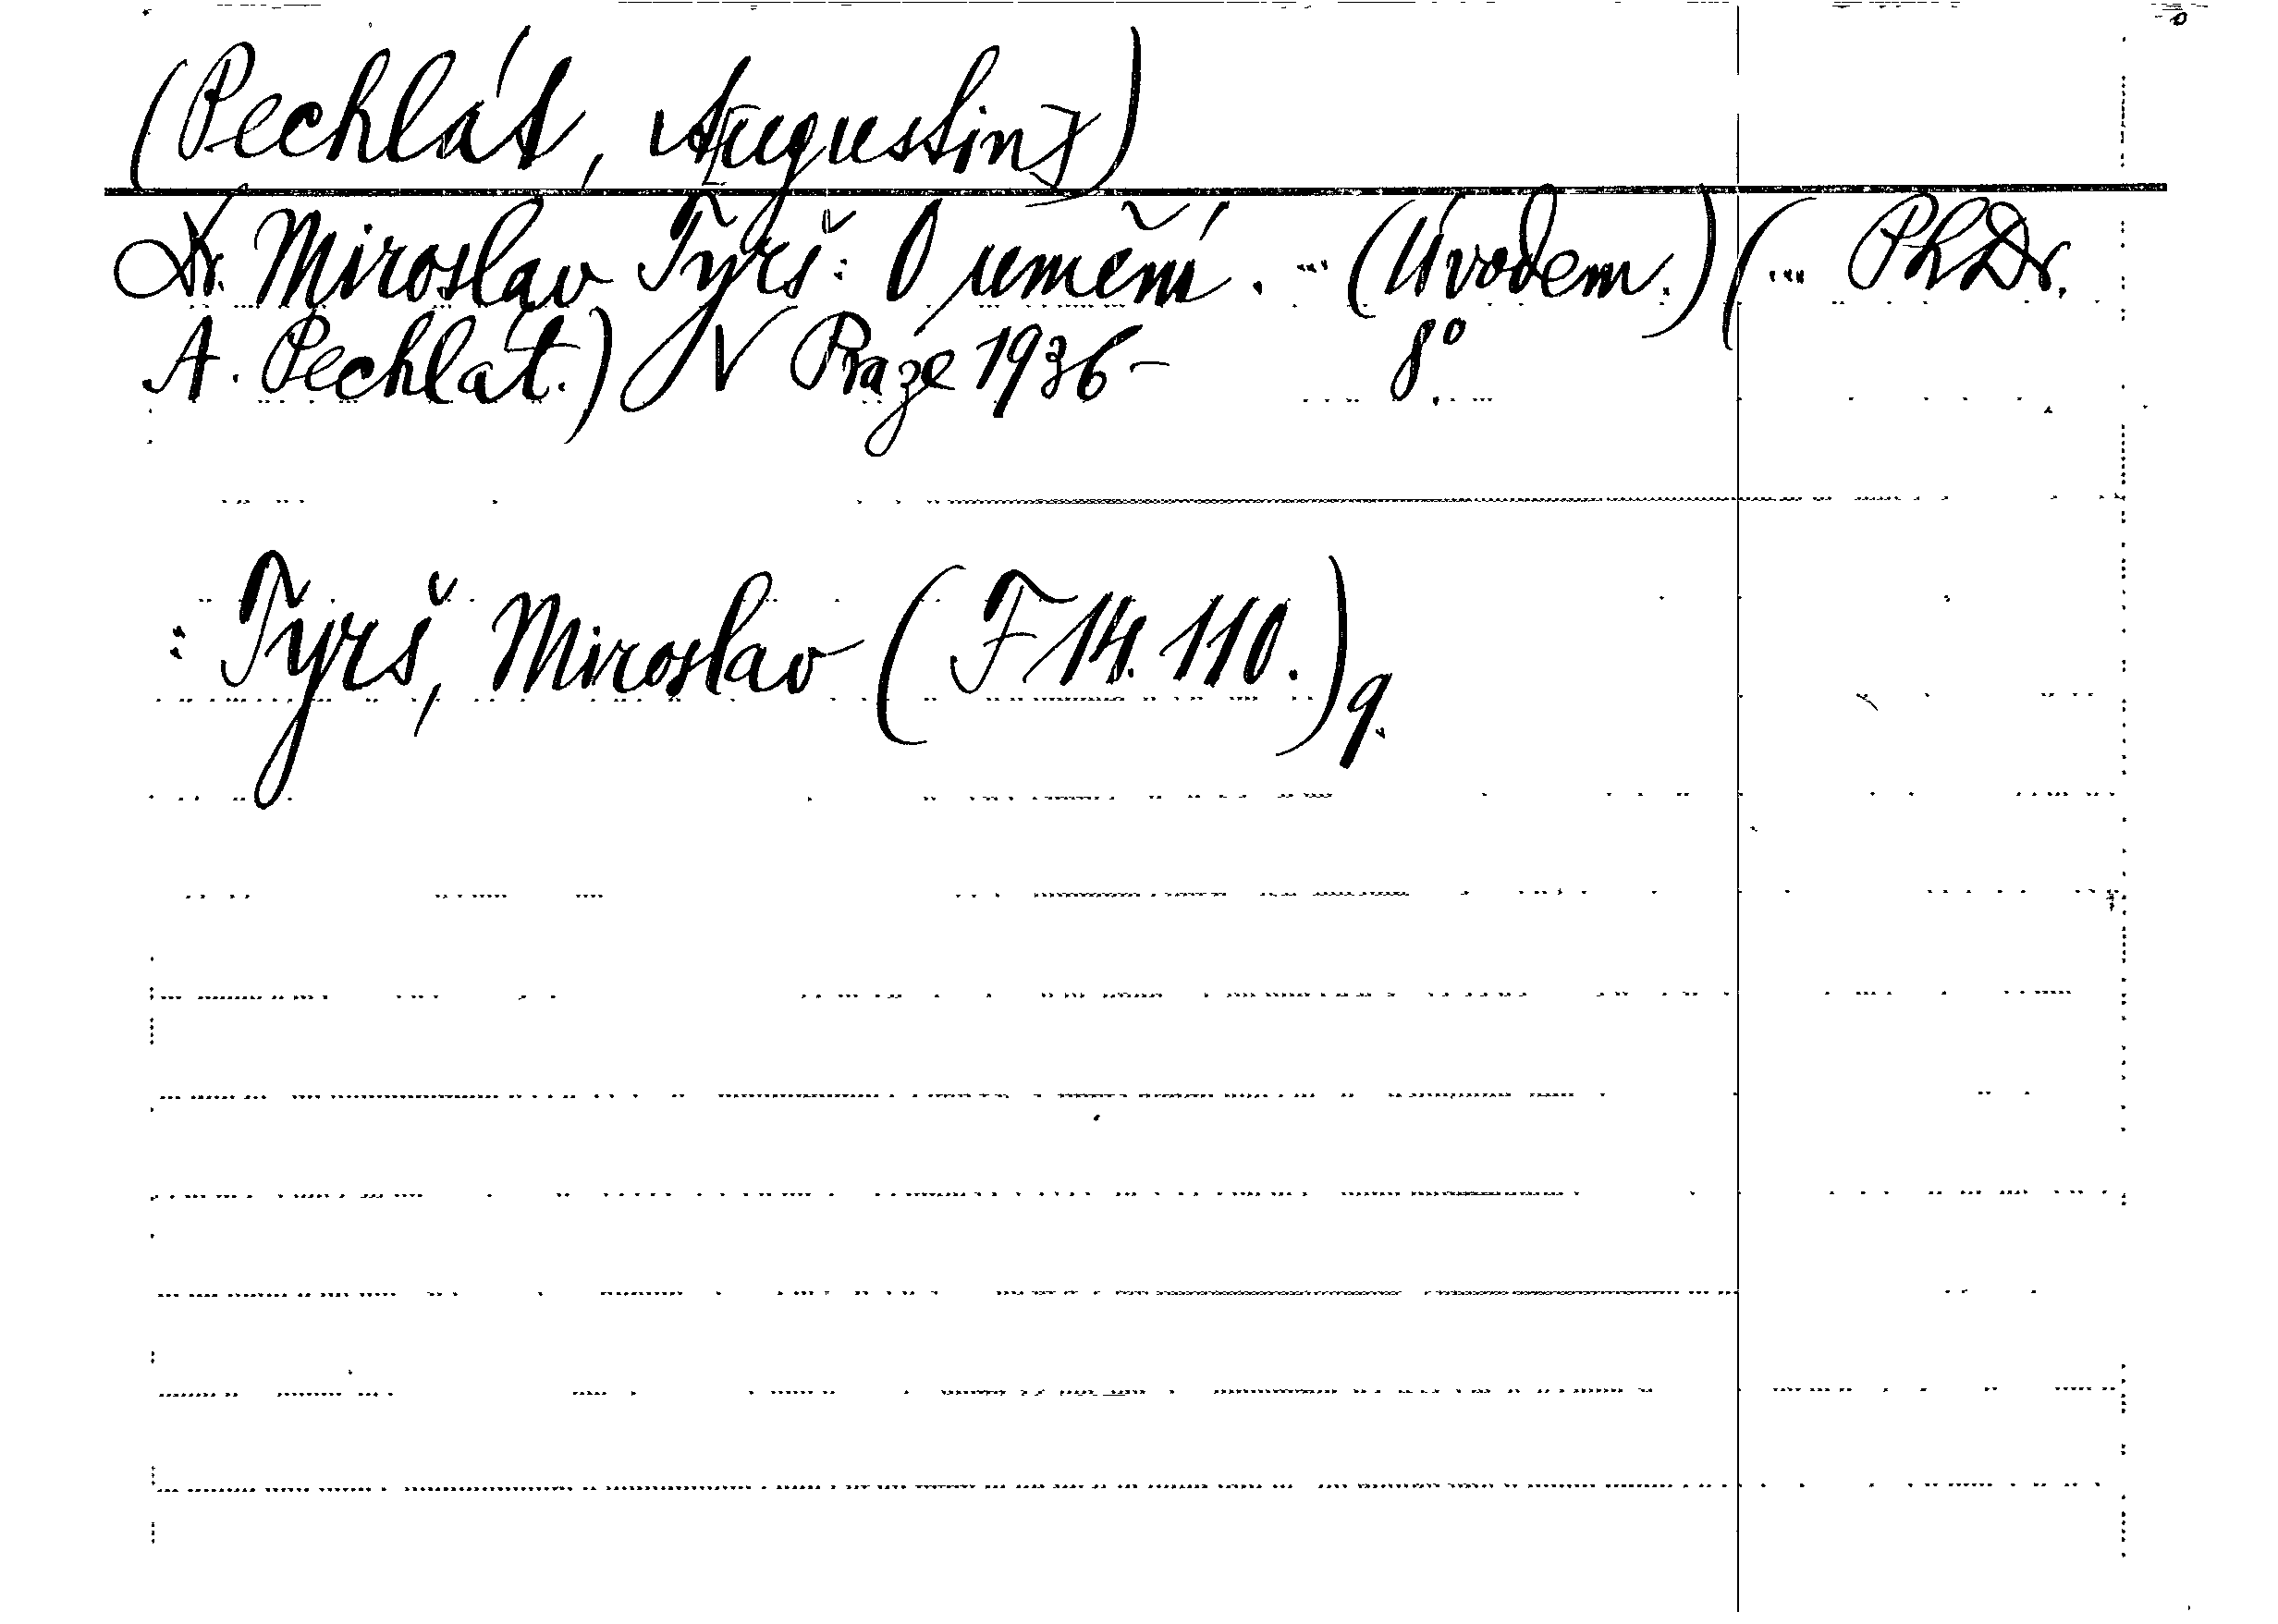 (Pechlát, A[ugustin])
Dr. Miroslav Tyrš: O umění. ... (Úvodem.) (... PhDr.
A. Pechlát.) V Praze 1936- 8°.
: Tyrš, Miroslav (F 14.110.) q.